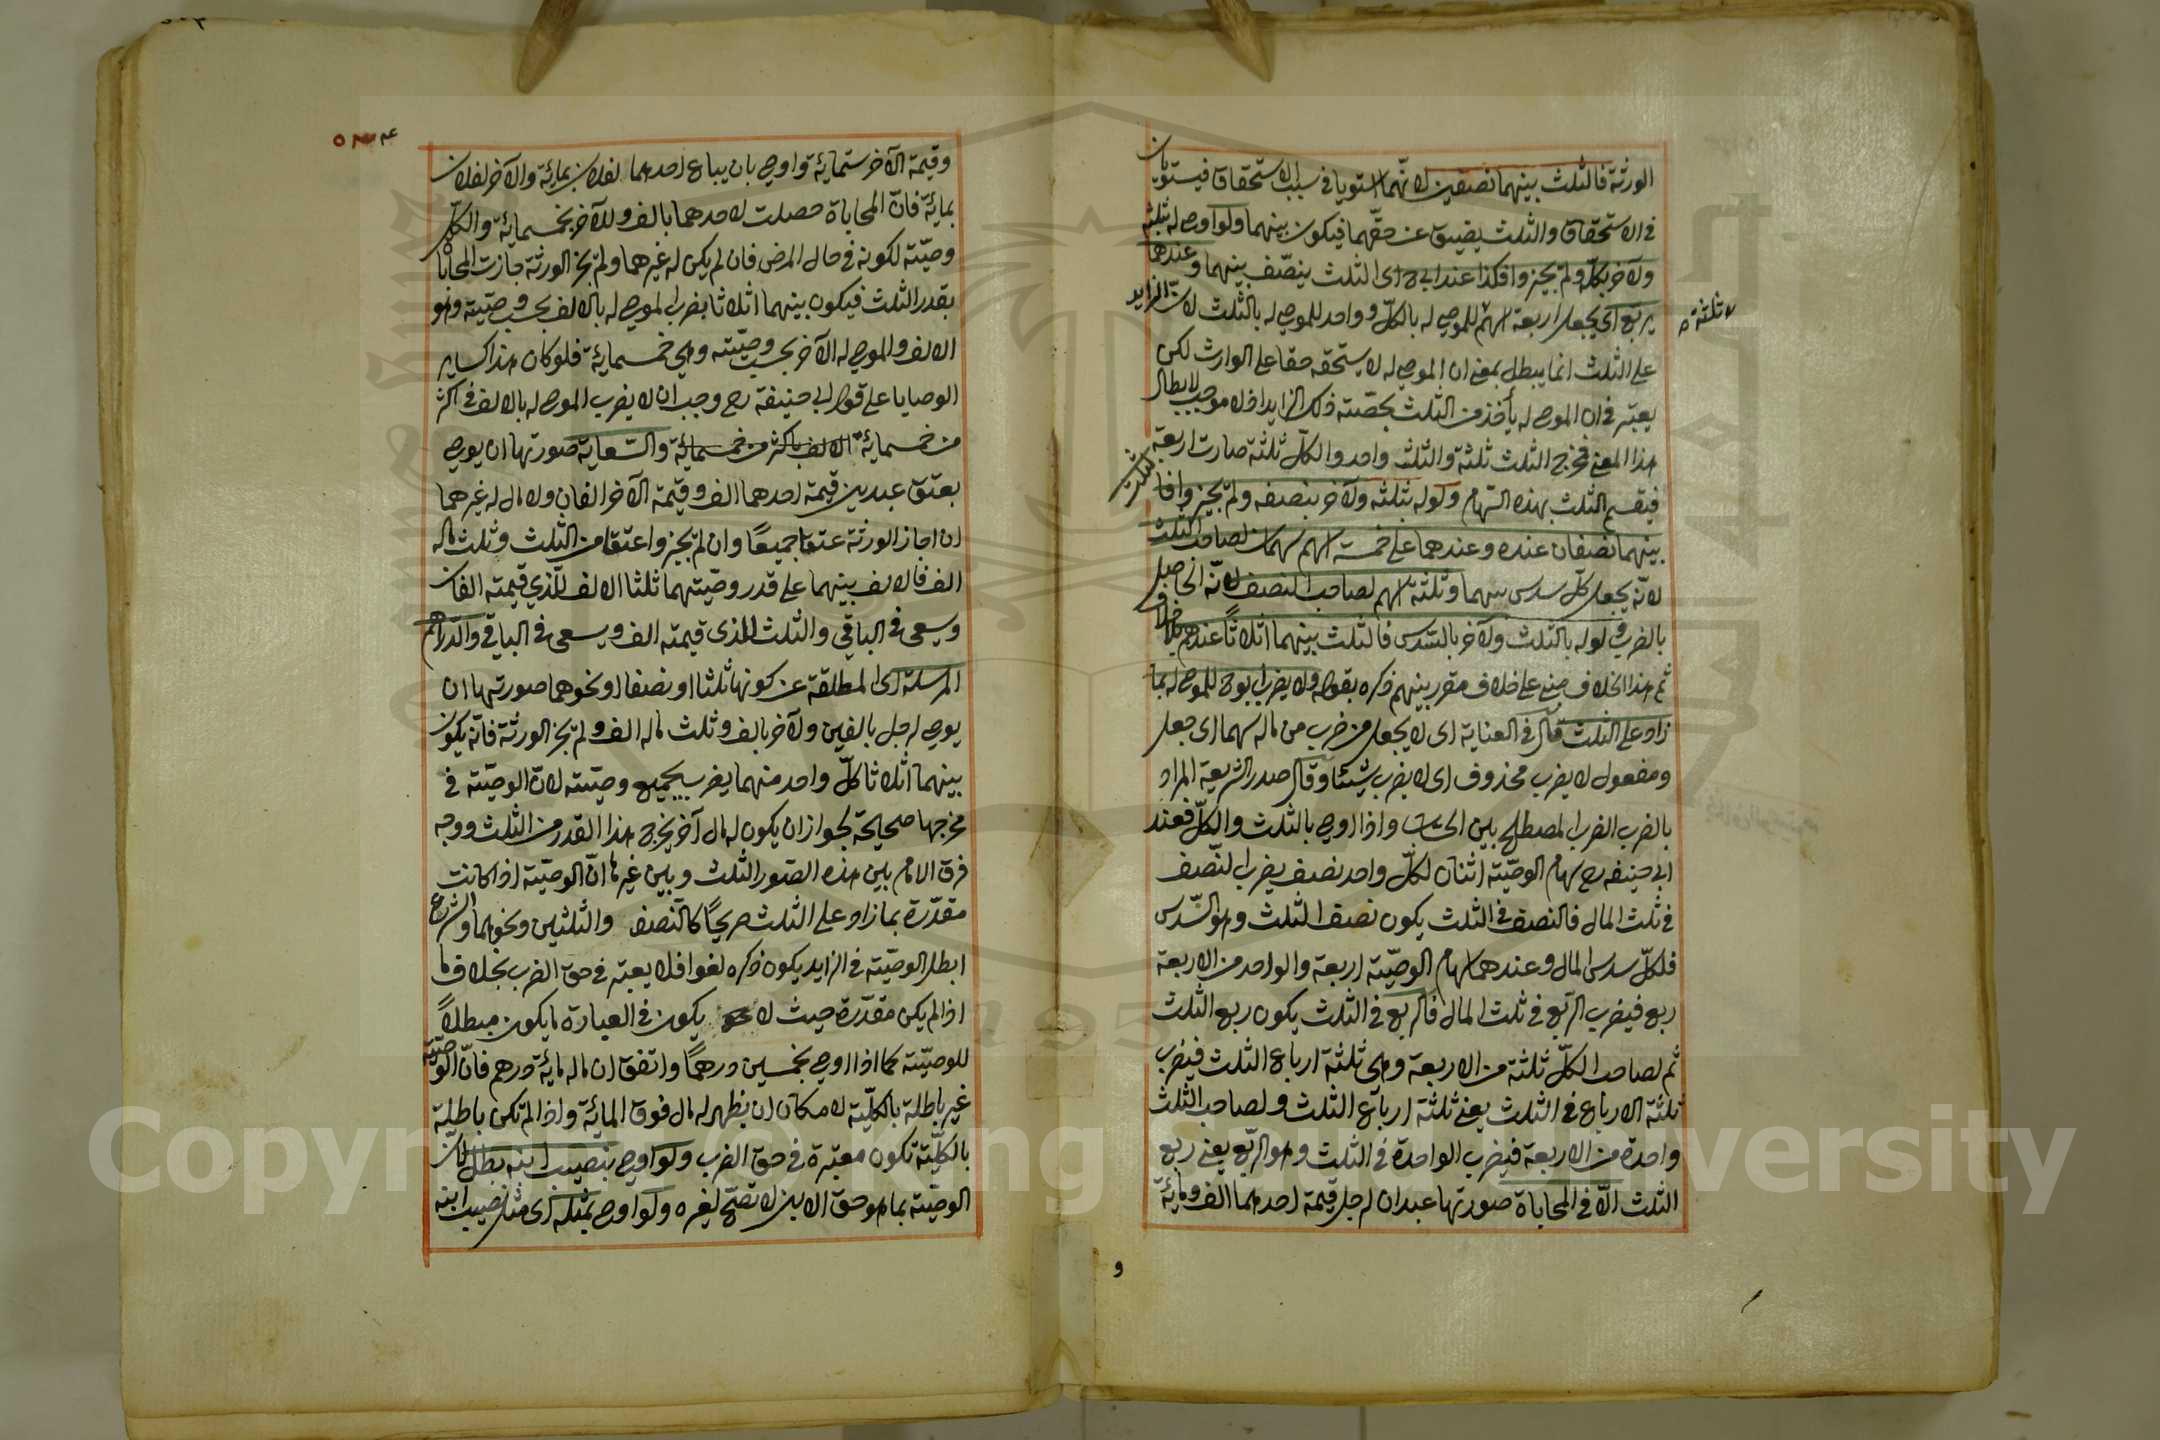 الورثة فالثلث بينهما نصفين لانّهما استويا في سبب الاستحقاق فيستويان
في الاستحقاق والثلث يضيق عن حقّهما فيكون بينهما ولو اوصى له بثلثه
ولآخر بكلّه ولم يجيزوا فكذا عند ابي ح اى الثلث ينصّف بينهما وعندهما
يربّع اى يجعل اربعة اسهم للموصى له بالكلّ وواحد للموصى له بالثلث لانّ الزايد
ثلثة
على الثلث انما يبطل بمعنى ان الموصى له لا يستحقه حقا على الوارث لكن
يعتبر في ان الموصى له يأخذ من الثلث بحصّته ذلك الزايد اذ لا موجب لابطال
هذا المعنى فمخرج الثلث ثلثة والثلث واحد والكلّ ثلثة صارت اربعة
فيقسم الثلث بهذه السّهام ولو له بثلثه ولآخر بنصفه ولم يجيزوا فا
لثلث
بينهما نصفان عنده وعندهما على خمسة اسهم سهمان لصاحب الثلث
لانّه يجعل كلّ سدس بينهما وثلثة اسهم لصاحب النصف لانّه الحاصل
بالضرب ولو له بالثلث ولآخر بالسّدس فالثلث بينهما اثلاثًا عندهم
ثم هذا الخلاف مبنى على خلاف مقرر بينهم ذكره بقوله ولا يضرب ابو ح للموصى له بما
زاد على الثلث قال في العناية اى لا يجعل من ضرب من ماله سهما اى جعل
ومفعول لا يضرب محذوف اى لا يضرب شيئا وقال صدر الشريعة المراد
بالضرب الضرب المصطلح بين الحسّاب واذا اوصى بالثلث والكلّ فعند
ابي حنيفه رح سهام الوصيّة اثنان لكلّ واحد نصف يضرب النّصف
في ثلث المال فالنصف في الثلث يكون نصف الثلث وهو السّدس
فلكلّ سدس المال وعندهما سهام الوصيّة اربعة والواحد من الاربعة
ربع فيضرب الرّبع في ثلث المال فالرّبع في الثلث يكون ربع الثلث
ثم لصاحب الكلّ ثلثة من الاربعة وهى ثلثة ارباع الثلث فيضرب
ثلثة الارباع في الثلث يعنى ثلثة ارباع الثلث ولصاحب الثلث
واحدة من الاربعة فيضرب الواحدة في الثلث وهو الرّبع يعنى ربع
الثلث الّا في المحاباة صورتها عبدان لرجل قيمة احدهما الف ومائة
و
۵۳۴
وقيمة الآخر ستمائة واوصى بان يباع احدهما لفلان بمائة والآخر لفلان
بمائة فانّ المحاباة حصلت لاحدهما بالف وللآخر بخمسمائة والكلّ
وصيّته لكونه في حال المرض فان لم يكن له غيرهما ولم يجز الورثة جازت المحاباة
بقدر الثلث فيكون بينهما اثلاثا يضرب الموصى له بالالف بحسب وصيّته وهو
الالف والموصى له الآخر بحسب وصيّته وهى خمسمائة فلو كان هذا كساير
الوصايا على قول ابي حنيفة رح وجب ان لا يضرب الموصى له بالالف في اكثر
من خمسمائة الالف باكثر من خمسمائة والسّعاية صورتها ان يوصى
بعتق عبدين قيمة احدهما الف وقيمة الآخر الفان ولا مال له غيرهما
ان اجاز الورثة عتقا جميعًا وان لم يجيزوا عتقا من الثلث وثلث ماله
الف فالالف بينهما على قدر وصيّتهما ثلثا الالف للذي قيمته الفان
ويسعى في الباقي والثلث للذى قيمته الف ويسعى في الباقي والدّراهم
المرسلة اى المطلقة عن كونها ثلثا او نصفا او نحوهما صورتها ان
يوصى لرجل بالفين ولآخر بالف وثلث ماله الف ولم يجز الورثة فانّه يكون
بينهما اثلاثا كلّ واحد منهما يضرب بجميع وصيّته لانّ الوصيّة في
مخرجها صحيحة لجواز ان يكون له مال آخر يخرج هذا القدر من الثلث ووجه
فرق الامام بين هذه الصّور الثلث وبين غيرها انّ الوصيّة اذا كانت
مقدّرة بما زاد على الثلث صريحًا كالنّصف والثلثين ونحوهما والشرع
ابطل الوصيّة في الزايد يكون ذكره لغوا فلا يعتبر في حق الضرب بخلاف ما
اذا لم يكن مقدّرة حيث لا يكون في العبارة ما يكون مبطلاً
للوصيّة كما اذا اوصى بخمسين درهمًا واتفق ان ماله مائة درهم فانّ الوصيّة
غير باطلة بالكلّية لامكان ان يظهر له مال فوق المائة واذا لم تكن باطلة
بالكلّيّة تكون معتبرة في حق الضرب ولو اوصى بنصيب ابنه بطل لانّ
الوصيّة بما هو حق الابن لا تصّح لغيره ولو اوصى بمثله اى مثل نصيب ابنه
Copyright © King Saud University